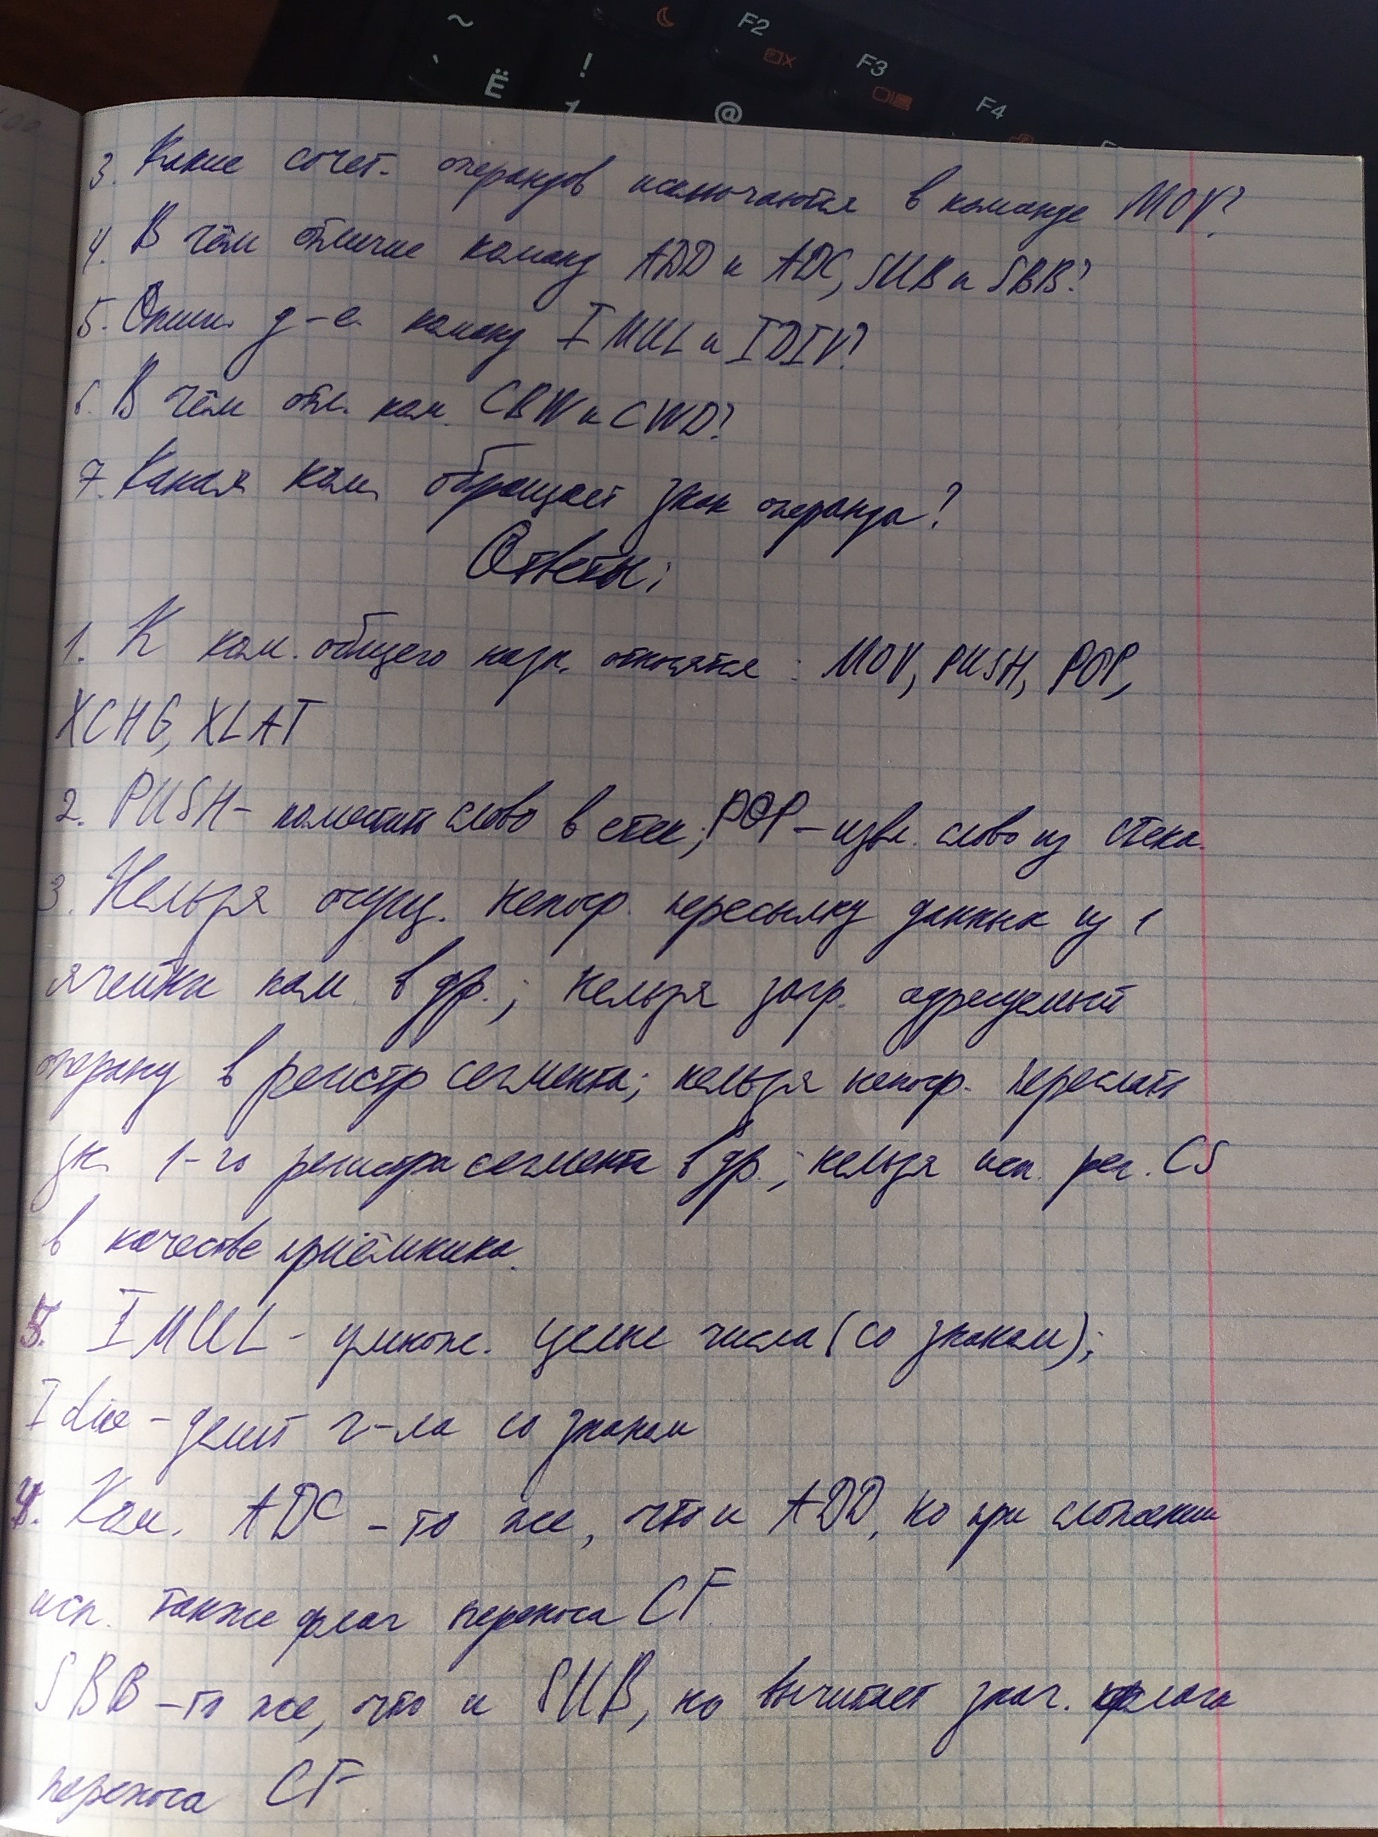 ~
` Ё
!
1
@
F2
F3
F4
3. Какие сочет. операндов исключаются в команде MOV?
4. В чём отличие команд ADD и ADC, SUB и SBB?
5. Опиш. д-е команд IMUL и IDIV?
6. В чём отл. ком. CBW и CWD?
7. Какая ком. обращает знак операнда?
Ответы:
1. К ком. общего назн. относятся: MOV, PUSH, POP,
XCHG, XLAT
2. PUSH - поместит слово в стек; POP - извл. слово из стека.
3. Нельзя осущ. непоср. пересылку данных из 1
ячейки пам. в др.; нельзя загр. адресуемый
операнд в регистр сегмента; нельзя непоср. переслать
зн. 1-го регистра сегмента в др.; нельзя исп. рег. CS
в качестве приёмника.
5. IMUL - умнож. целые числа (со знаком);
Idiv - делит ч-ла со знаком
4. Ком. ADC - то же, что и ADD, но при сложении
исп. также флаг переноса CF.
SBB - то же, что и SUB, но вычитает знач. флага
переноса CF